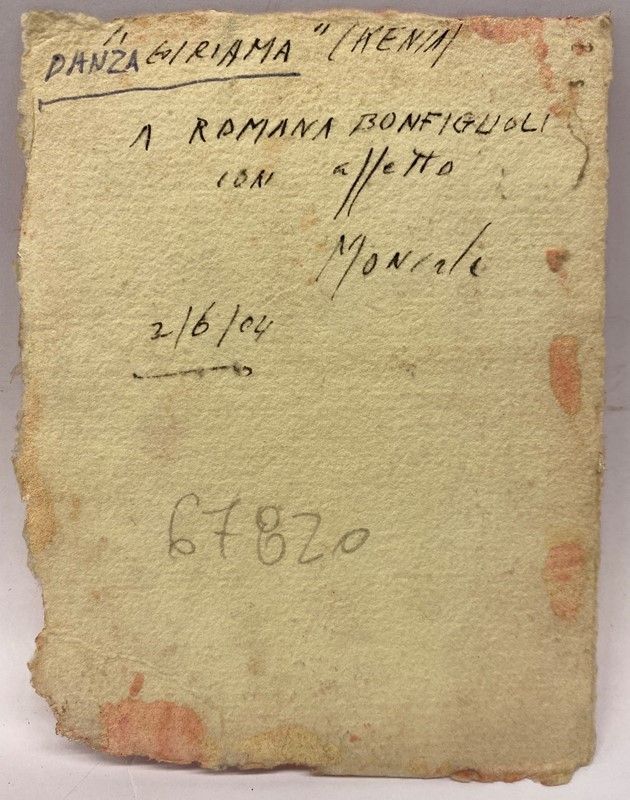 DANZA "GIRIAMA" (KENIA)
A ROMANA BONFIGLIOLI
CON affetto
2/6/04
67820